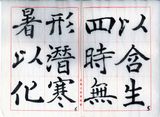 以含生
四時無
形潛寒
暑以化